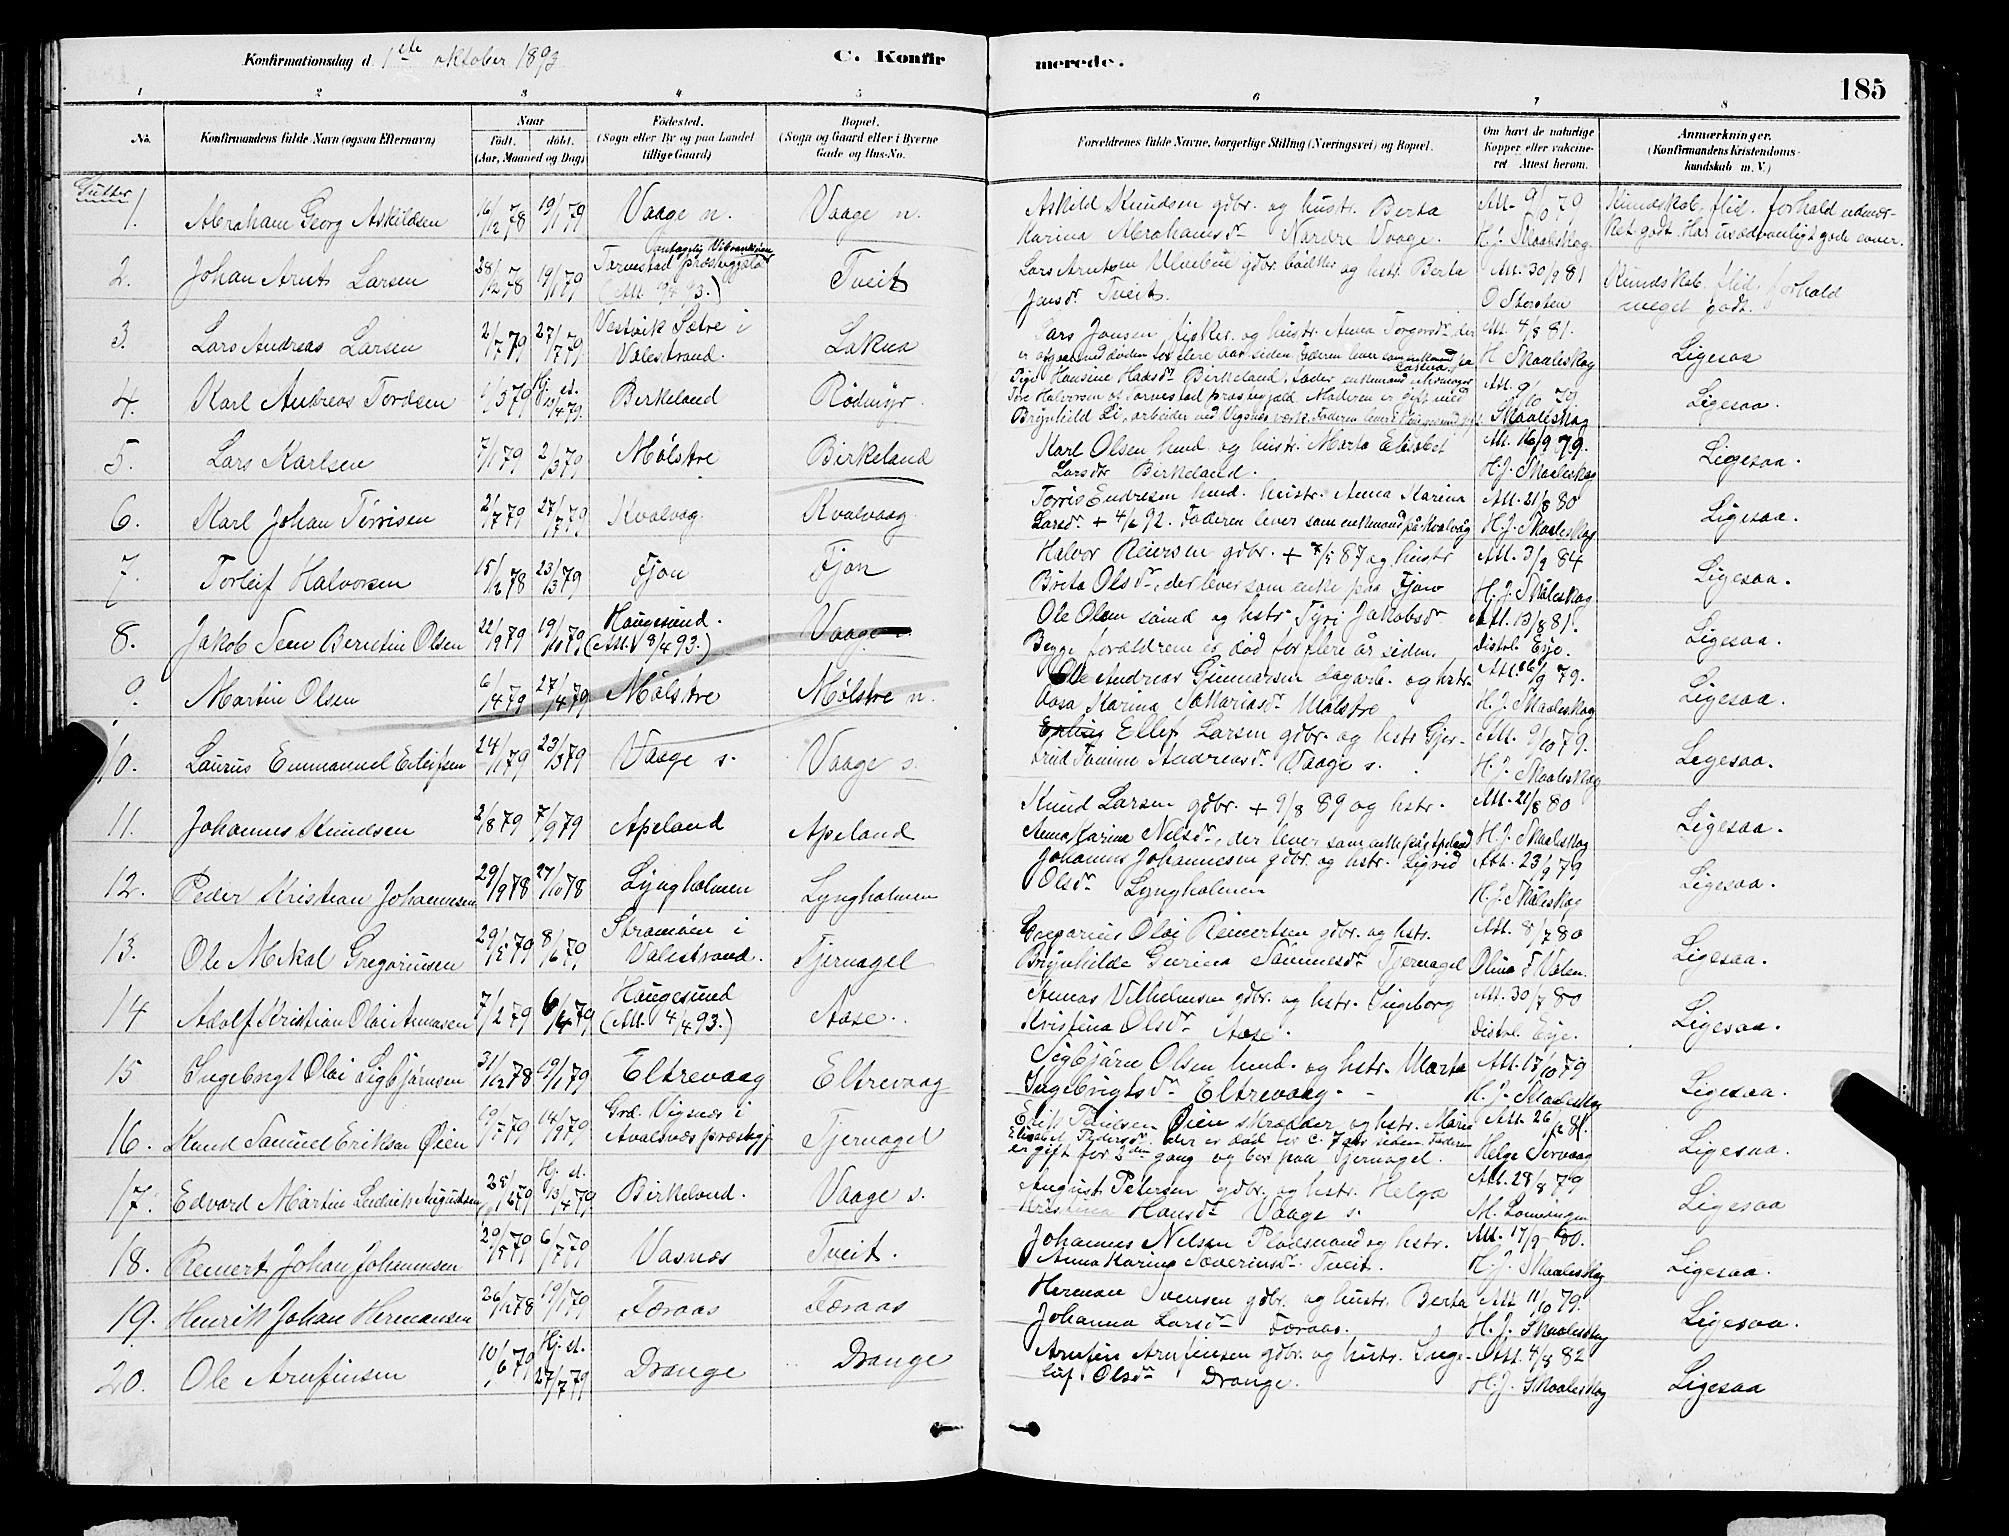 Konfirmationsdag d. 1ste oktober 1893
C. Konfirmerede.
185
1 2 3 4 5 6 7 8
No.
Konfirmandens fulde Navn (ogsaa Efternavn)
Naar
født. døbt.
(Aar, Maaned og Dag)
Fødested.
(Sogn eller By og paa Landet
tillige Gaard)
Bopæl.
(Sogn og Gaard eller i Byerne
Gade og Hus-No.
Forældrenes fulde Navne, borgerlige Stilling (Næringsvei) og Bopæl.
Om havt de naturlige
Kopper eller vakcine-
ret Attest herom.
Anmærkninger.
(Konfirmandens Kristendoms-
kundskab m. V.)
Gutter
1. Abraham Georg Askildsen 16/12 78 19/1 79 Vaage n. Vaage n.
Askild Knudsen gdbr. og hustr. Berta Att. 9/10 79 Kundskab, flid, forhold udmær-
Karina Abrahamsdr Nordre Vaage. H.J. Skaaleskog ket godt. Har usædvanligt gode evner.
2. Johan Arnt Larsen 28/12 78 19/1 79 Tørvestad præstegjeld Tveit
Lars Arntsen Ulvebne gdbr. bødker og hstr. Berta Att. 30/9 81 Kundskab, flid, forhold
Jensdr Tveit. O Storsten meget godt.
3. Lars Andreas Larsen 2/7 79 27/7 79 Vestvik Sætre i Valestrand. Lokna
Lars Jonsen fisker og hustr. Anna Torgersdr, der Att. 4/8 81.
er afgaaet ved døden for flere aar siden Faderen lever som enkemand paa Lokna. H Skaaleskog Ligesaa
4. Karl Andreas Tordsen 1/3 79 Hj. d. 13/4 79. Birkeland Rødmyr.
Pige Hansine Hansdr Birkeland, fader, enkemand
Tore Halvorsen af Torvestad præstegjeld. Moderen er gift med Att. 9/10 79 Ligesaa.
Brynhild Li, arbeider ved Vigsnes værk. Faderen lever Skaaleskog
5. Lars Karlsen 7/1 79 2/3 79 Mølstre Birkeland
Karl Olsen hmd. og hustr. Marta Elisabet Att. 16/9 79.
Larsdr Birkeland. H.J. Skaaleskog Ligesaa.
6. Karl Johan Tørrisen 2/7 79 27/7 79 Kvalvag. Kvalvaag.
Tørris Endresen hmd. hustr. Anna Karina Att. 21/8 80
Larsdr + 4/6 92. Faderen lever som enkemand på Kvalvåg H.J. Skaaleskog Ligesaa.
7. Torleif Halvorsen 15/12 78 23/3 79 Fjon Fjon
Halvor Reiersen gdbr. + 7/5 87 og hustr Att. 3/9 84
Brita Olsdr, der lever som enke paa Fjon H.J. Skåleskog Ligesaa.
8. Jakob Sem Berntin Olsen 22/9 79 19/10 79 Haugesund. (Att. 8/4 93.) Vaage
Ole Olsen sømd og hstr. Tyri Jakobsdr Att. 13/8 81.
Begge forældrene er død for flere år siden. Distrl. Erje. Ligesaa.
9. Martin Olsen 6/4 79 27/4 79 Mølstre Mølstre n.
Ole Andreas Gunnarsen dagarb. og hstr. Att. 16/9 79.
Aasa Karina Sakariasdr Mølstre H.J. Skaaleskog Ligesaa.
10. Laurus Emmanuel Eilefsen 24/1 79 23/3 79 Vaage s. Vaage s.
Ellef Larsen gdbr. og hstr Gjer- Att. 9/10 79.
trud Tomine Andreasdr Vaage s. H.J. Skaaleskog Ligesaa.
11. Johannes Knudsen 2/8 79 7/9 79 Apeland Apeland
Knud Larsen gdbr. + 9/8 89 og hstr. Att. 21/8 80
Anna Karina Nilsdr, der lever som enke på Apeland H.J. Skaaleskog Ligesaa.
12. Peder Kristian Johannesen 29/9 78 27/10 78 Lyngholmen Lyngholmen
Johannes Johannesen gdbr. og hstr. Sigrid Att. 23/9 79
Olsdr Lyngholmen H.J. Skåleskog Ligesaa.
13. Ole Mikal Gregoriusen 29/5 79 8/6 79 Strømøen i Valestrand. Tjernagel
Gregorius Olai Reinertsen gdbr. og hstr. Att. 8/7 80
Brynhilde Gurina Sammesdr Tjernagel Olina F Valen. Ligesaa.
14 Adolf Kristian Olai Amasen 7/2 79 6/4 79 Haugesund (Att. 4/4 93.) Aase.
Amas Vilhelmsen gdbr. og hstr. Ingeborg Att. 30/7 80
Kristina Olsdr Aase. Distrl. Erje. Ligesaa.
15 Ingebrigt Olai Sigbjørnsen 31/12 78 19/1 79 Eltrevaag Eltrevaag
Sigbjørn Olsen hmd. og hstr. Marta Att. 17/10 79
Ingebrigtsdr Eltrevaag. H.J. Skaaleskog Ligesaa.
16. Knud Samuel Eriksen Øien 19/5 79 14/9 79 Grd. Vigsnæs i Avalsnæs præstegj. Tjernagel
Erik Paulsen Øien skrædder og hstr. Maria Att. 26/2 81.
Elisabet Pedersdr der er død for c. 7 aar siden. Faderen
er gift for 2den gang og bor paa Tjernagel. Helge Sørvaag Ligesaa.
17. Edvard Martin Ludvik Augustsen 25/2 79 Hj. d. 13/4 79. Birkeland. Vaage s.
August Petersen gdbr. og hstr. Helga Att. 28/8 79
Kristina Hansdr Vaage s. M. Lønningen Ligesaa
18. Reinert Johan Johannesen 29/5 79 6/7 79 Vasnæs Tveit.
Johannes Nelsen Pladsmand og hstr. Att. 17/9 80.
Anna Karina Sæverinsdr Tveit. H.J. Skaaleskog Ligesaa.
19. Henrik Johan Hermansen 26/12 78 19/1 79 Færaas Færaas
Herman Svensen gdbr. og hustr. Berta Att 11/10 79.
Johanna Larsdr Færaas. H.J. Skaaleskog Ligesaa.
20. Ole Arnfinsen 10/6 79 Hj. d. 27/7 79 Drange Drange
Arnfin Arnfinsen gdbr. og hustr. Inge- Att. 4/8 82
lief Olsdr Drange. H.J. Skaaleskog Ligesaa